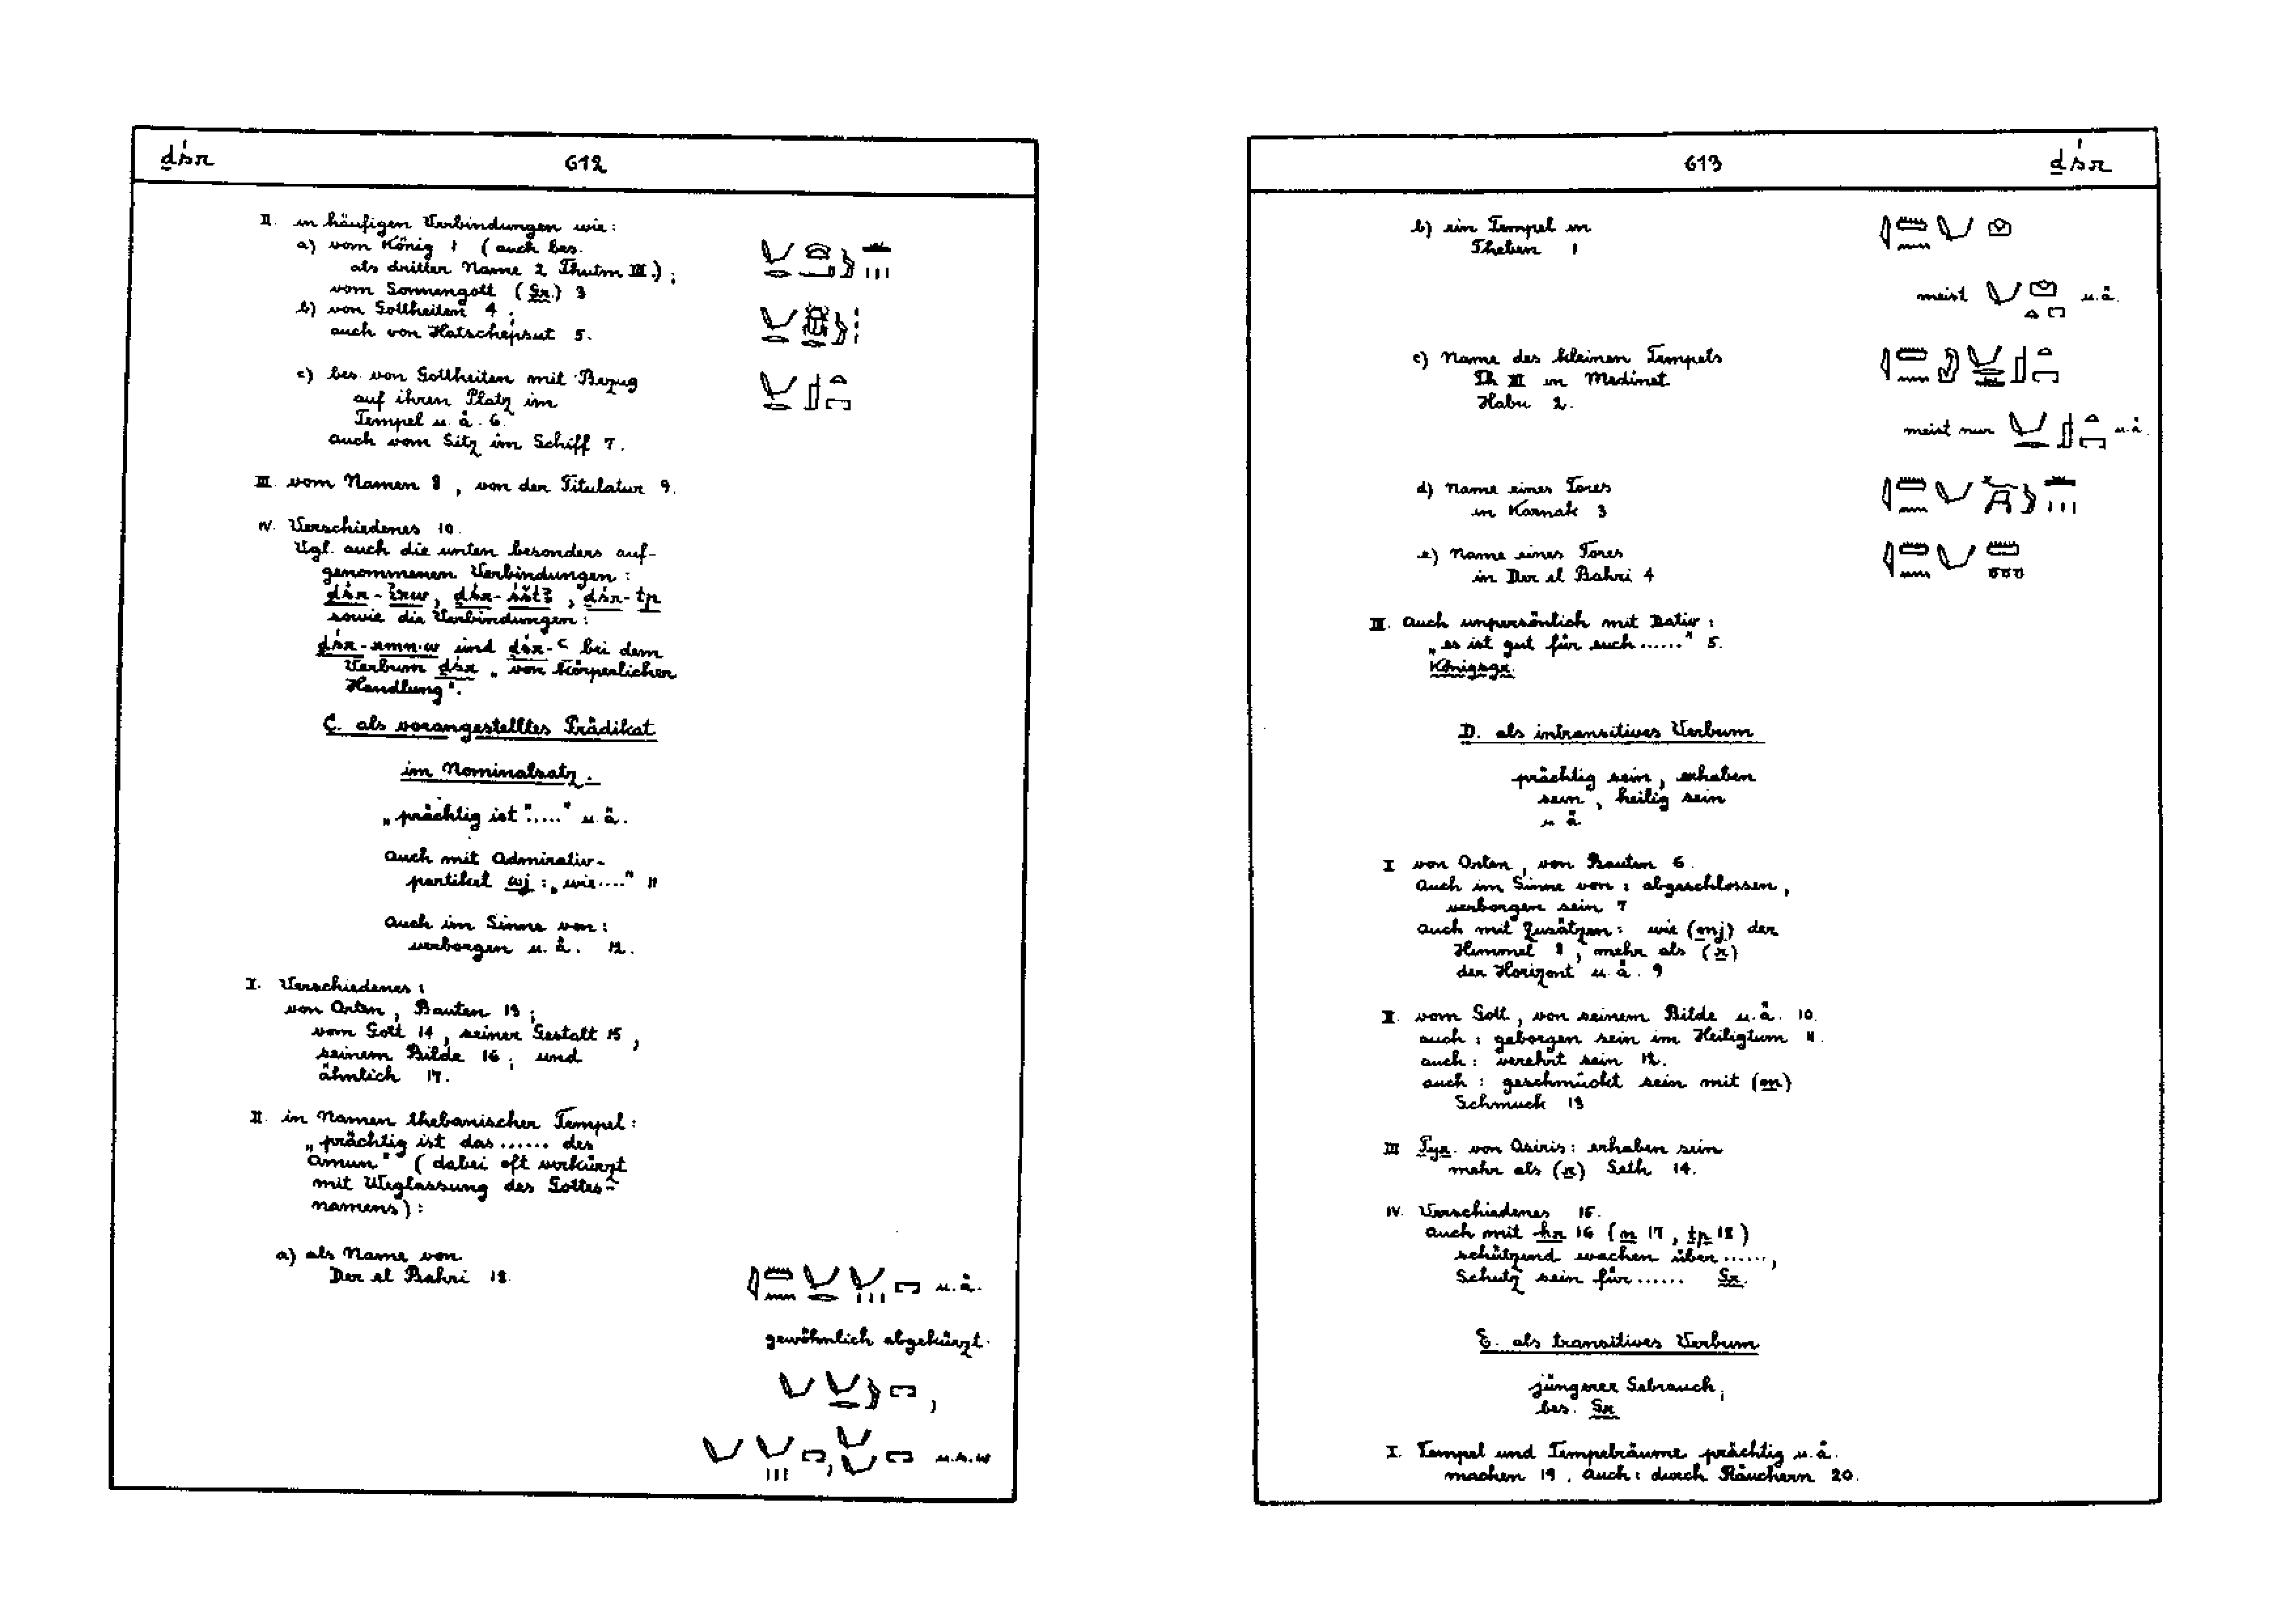 ḏśr
612
II. in häufigen Verbindungen wie:
a) vom König 1 (auch bes.
als dritter Name 2 Thutm III.);
vom Sonnengott (Gr.) 3
b) von Gottheiten 4;
auch von Hatschepsut 5.
c) bes. von Gottheiten mit Bezug
auf ihren Platz im
Tempel u. ä. 6.
auch vom Sitz im Schiff 7.
III. vom Namen 8, von der Titulatur 9.
IV. Verschiedenes 10.
Vgl. auch die unten besonders auf-
genommenen Verbindungen:
ḏśr-ꜣrw, ḏśr-śštꜣ, ḏśr-tp
sowie die Verbindungen:
ḏśr-rmn.w und ḏśr-ꜥ bei dem
Verbum ḏśr „von körperlicher
Handlung".
C. als vorangestelltes Prädikat
im Nominalsatz.
„prächtig ist "....." u. ä.
auch mit Admirativ-
partikel wj: „wie...." 11
auch im Sinne von:
verborgen u. ä. 12.
I. Verschiedenes:
von Orten, Bauten 13;
vom Gott 14, seiner Gestalt 15,
seinem Bilde 16; und
ähnlich 17.
II. in Namen thebanischer Tempel:
„prächtig ist das ...... des
Amun" (dabei oft verkürzt
mit Weglassung des Gottes-
namens):
a) als Name von
Der el Bahri 18.
u. ä.
gewöhnlich abgekürzt.
,
, u.s.w
613
ḏśr
b) ein Tempel in
Theben 1
meist u. ä.
c) Name des kleinen Tempels
Th III in Medinet
Habu 2.
meist nur u. ä.
d) Name eines Tores
in Karnak 3
e) Name eines Tores
in Der el Bahri 4
III. Auch unpersönlich mit Dativ:
„es ist gut für euch ......" 5.
Königsgr.
D. als intransitives Verbum
prächtig sein, erhaben
sein, heilig sein
u. ä.
I von Orten, von Bauten 6.
Auch im Sinne von: abgeschlossen,
verborgen sein 7
auch mit Zusätzen: wie (mj) der
Himmel 8, mehr als (r)
der Horizont u. ä. 9
II. vom Gott, von seinem Bilde u. ä. 10.
auch: geborgen sein im Heiligtum 11.
auch: verehrt sein 12.
auch: geschmückt sein mit (m)
Schmuck 13
III Pyr. von Osiris: erhaben sein
mehr als (r) Seth 14.
IV. Verschiedenes 15.
Auch mit ḥr 16 (m 17, tp 18)
schützend wachen über ......,
Schutz sein für ...... Gr.
E. als transitives Verbum
jüngerer Gebrauch;
bes. Gr
I. Tempel und Tempelräume prächtig u. ä.
machen 19. Auch: durch Räuchern 20.